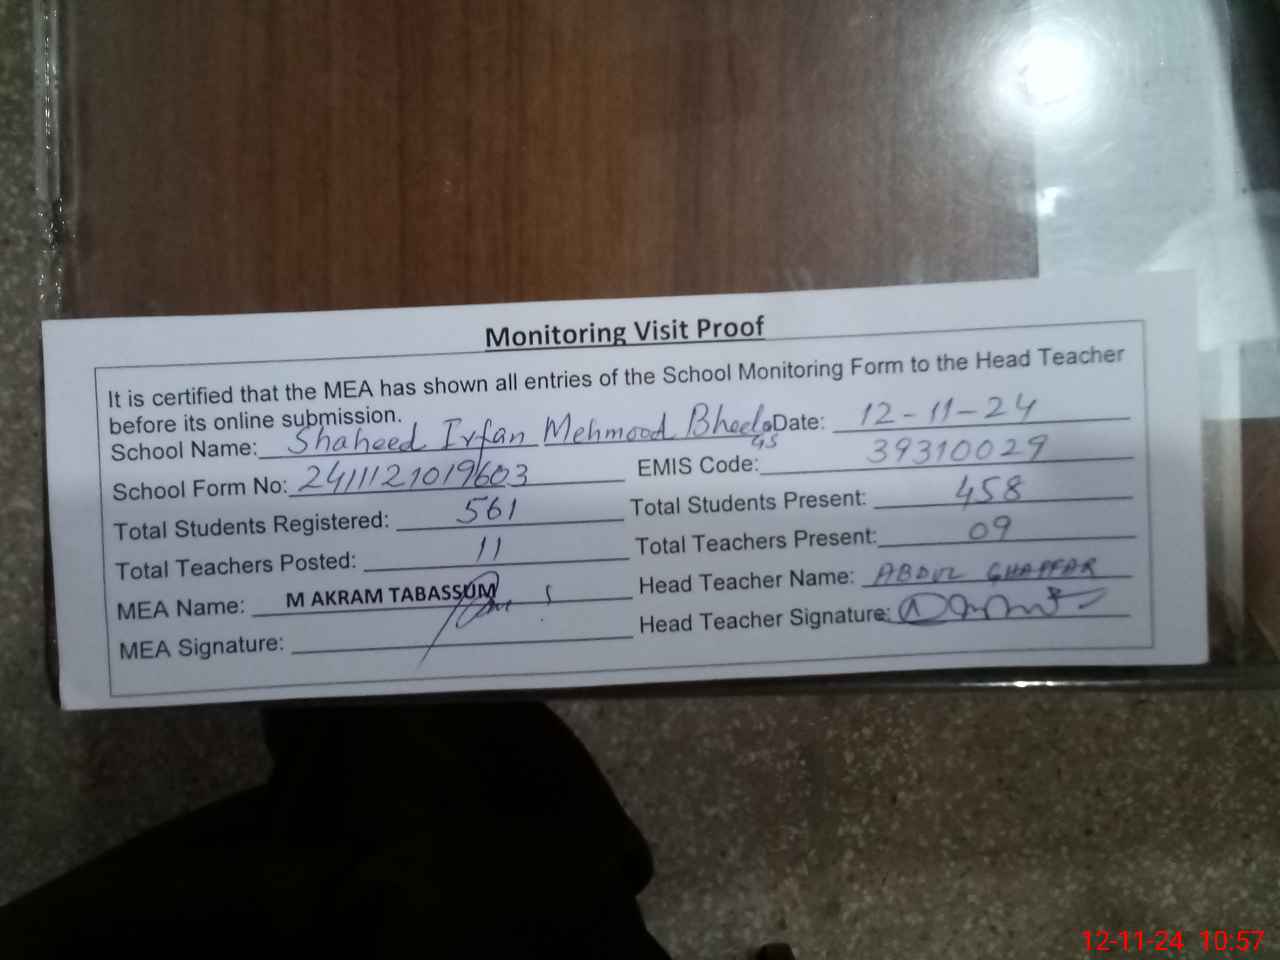 Monitoring Visit Proof
It is certified that the MEA has shown all entries of the School Monitoring Form to the Head Teacher
before its online submission.
School Name: Shaheed Irfan Mehmood Date: 12-11-24
School Form No: 2411121019603 EMIS Code: 39310029
Total Students Registered: 561 Total Students Present: 458
Total Teachers Posted: 11 Total Teachers Present: 09
MEA Name: M AKRAM TABASSUM Head Teacher Name: ABDUL GHAFFAR
MEA Signature: Head Teacher Signature:
12-11-24 10:57